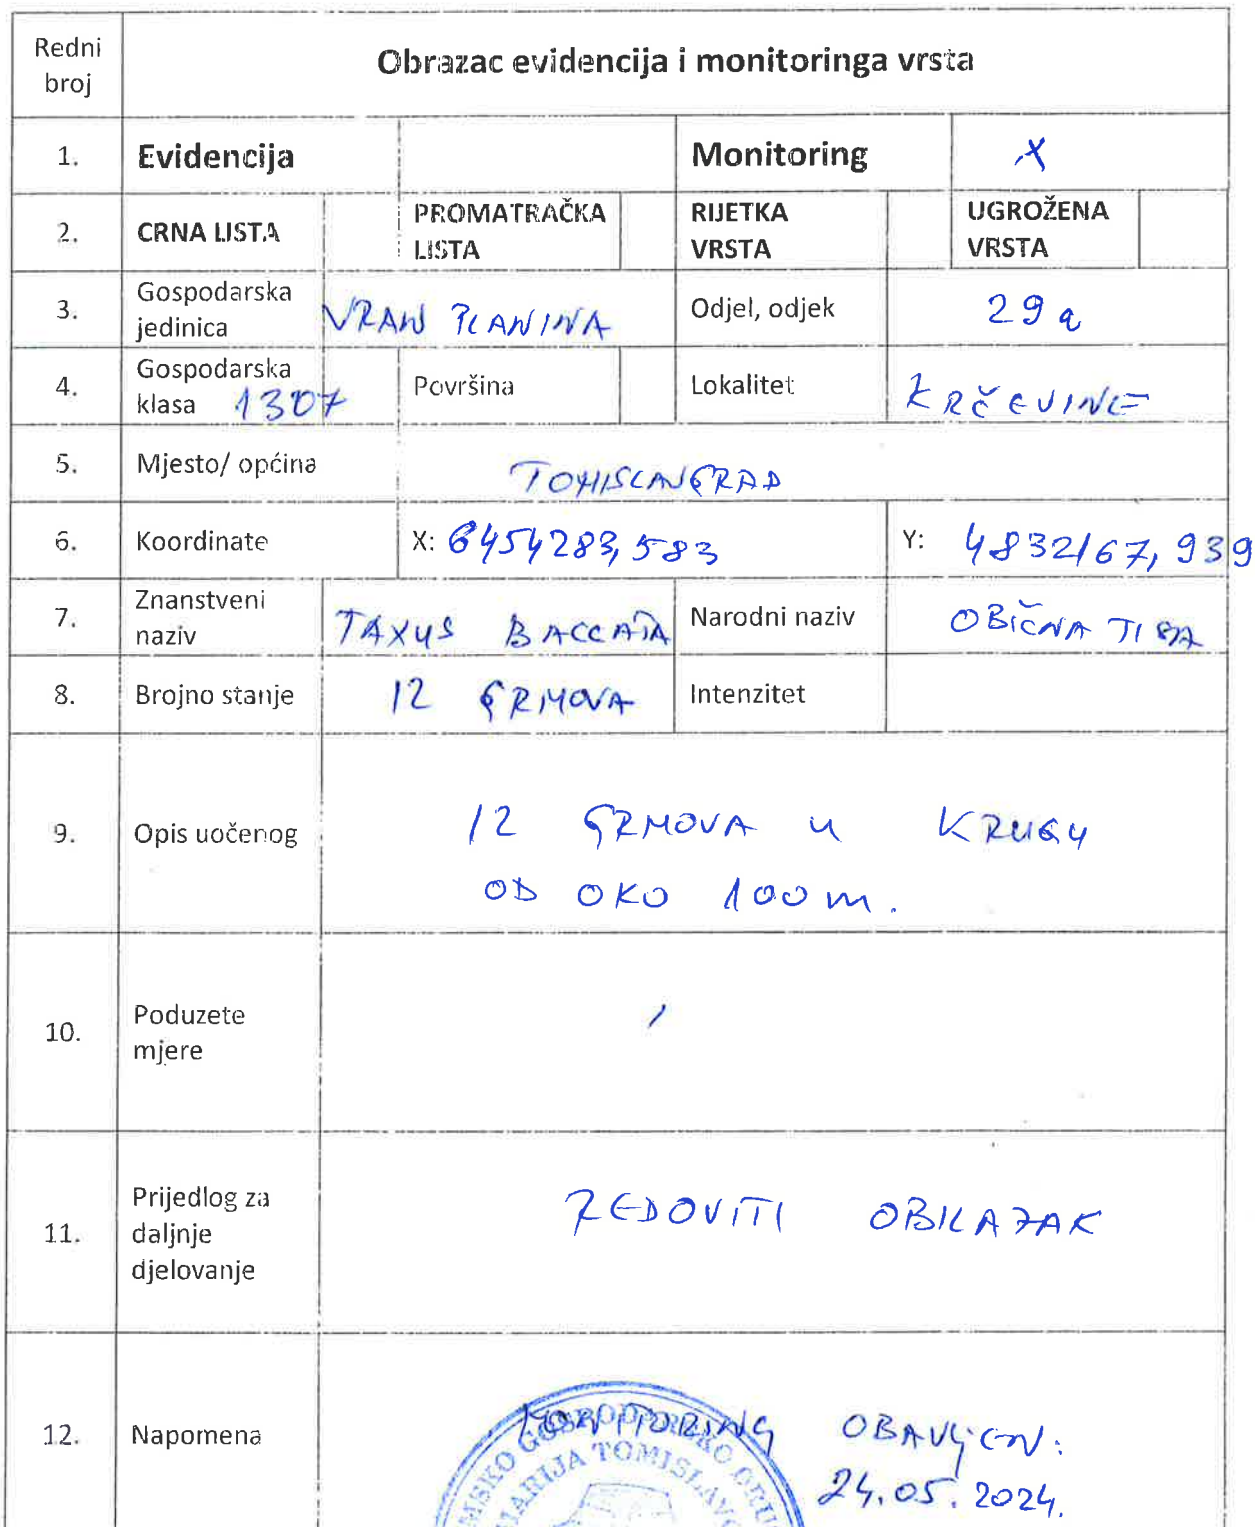 Redni broj
Obrazac evidencija i monitoringa vrsta
1. Evidencija Monitoring X
2. CRNA LISTA PROMATRAČKA LISTA RIJETKA VRSTA UGROŽENA VRSTA
3. Gospodarska jedinica VRAN PLANINA Odjel, odjek 29 a
4. Gospodarska klasa 1307 Površina Lokalitet KRČEVINE
5. Mjesto/ općina TOMISLAVGRAD
6. Koordinate X: 6454283,583 Y: 4832167,939
7. Znanstveni naziv TAXUS BACCATA Narodni naziv OBIČNA TISA
8. Brojno stanje 12 GRMOVA Intenzitet
9. Opis uočenog 12 GRMOVA U KRUGU
OD OKO 100 m.
10. Poduzete mjere /
11. Prijedlog za daljnje djelovanje REDOVITI OBILAZAK
12. Napomena MONITORING OBAVLJEN:
24.05.2024.